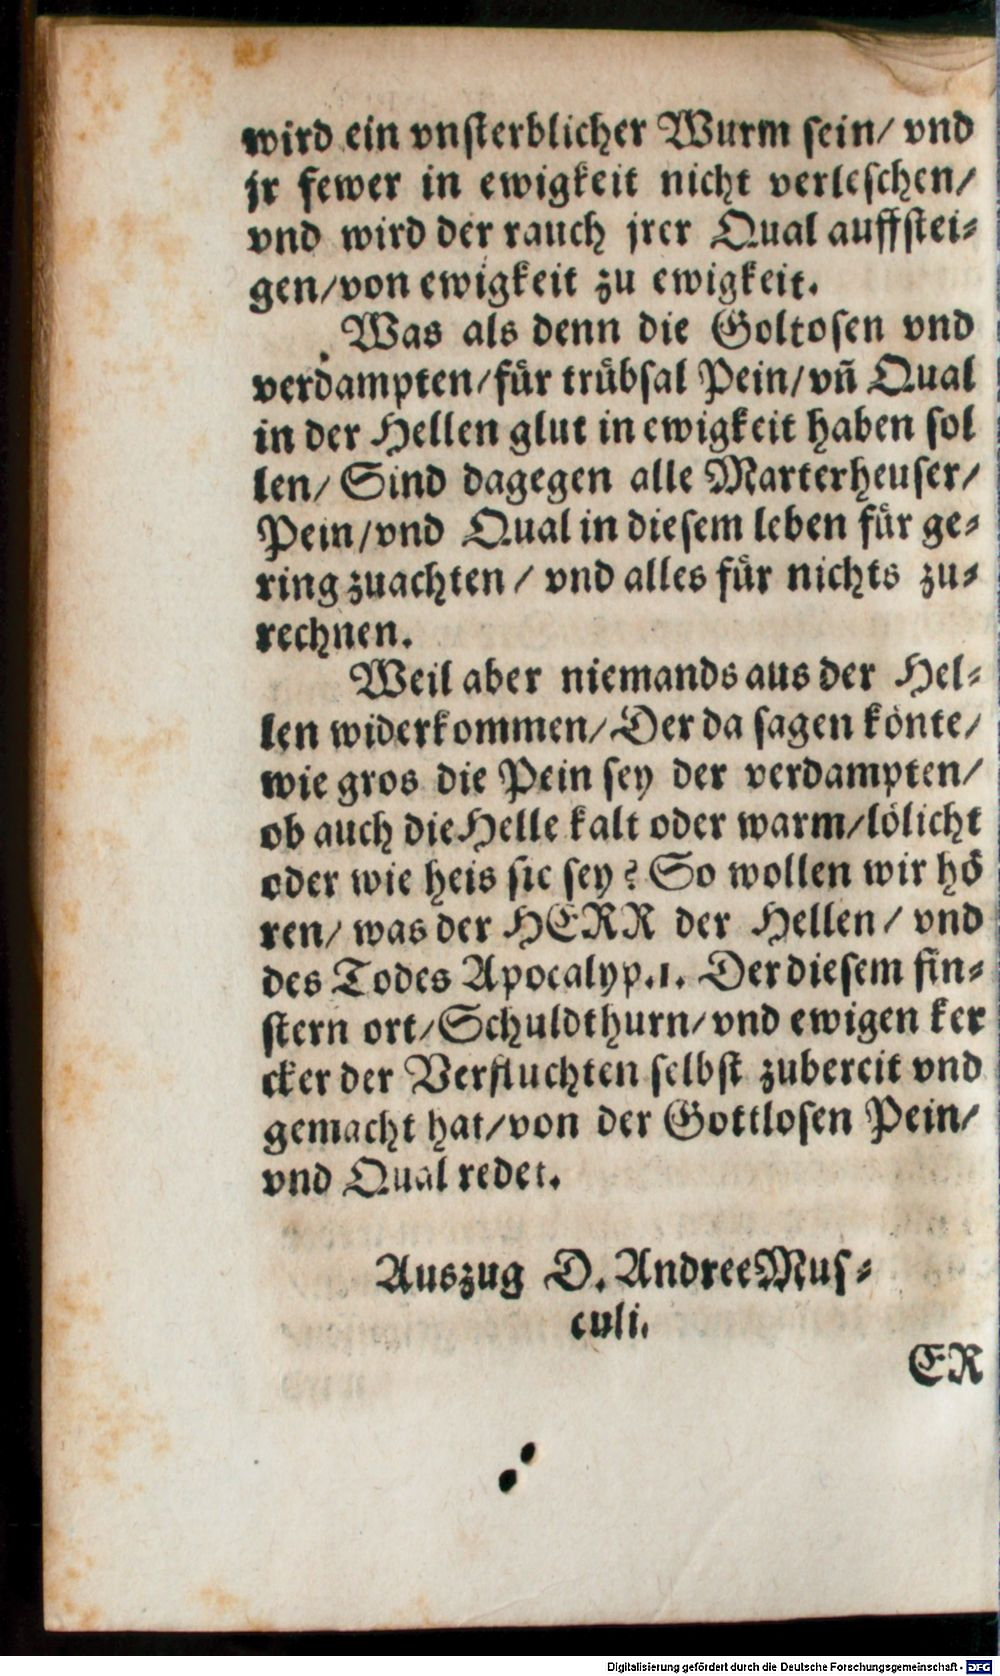 wird ein vnsterblicher Wurm sein/ vnd
jr fewer in ewigkeit nicht verleschen/
vnd wird der rauch jrer Qual auffstei-
gen/von ewigkeit zu ewigkeit.
Was als denn die Goltosen vnd
verdampten/für trübsal Pein/vñ Qual
in der Hellen glut in ewigkeit haben sol
len/ Sind dagegen alle Marterheuser/
Pein/vnd Qual in diesem leben für ge-
ring zuachten / vnd alles für nichts zu-
rechnen.
Weil aber niemands aus der Hel-
len widerkommen/Der da sagen könte/
wie gros die Pein sey der verdampten/
ob auch die Helle kalt oder warm/lölicht
oder wie heis sie sey? So wollen wir hö
ren/ was der HERR der Hellen / vnd
des Todes Apocalyp.1. Der diesem fin-
stern ort/Schuldthurn/vnd ewigen ker
cker der Verfluchten selbst zubereit vnd
gemacht hat/von der Gottlosen Pein/
vnd Qual redet.
Auszug D. Andree Mus-
culi.
ER
Digitalisierung gefördert durch die Deutsche Forschungsgemeinschaft - DFG